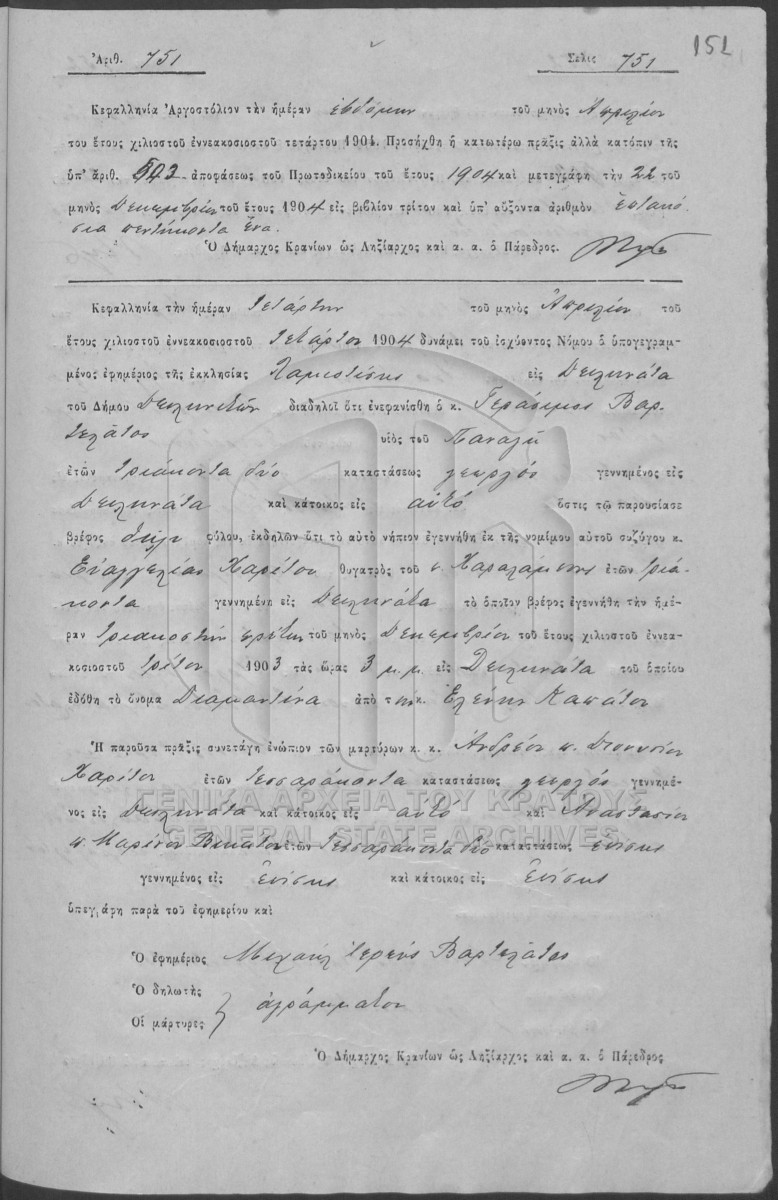 151
Ἀριθ. 751 Σελὶς 751
Κεφαλληνία Ἀργοστόλιον τὴν ἡμέραν ἑβδόμην τοῦ μηνὸς Ἀπριλίου
του ἔτους χιλιοστοῦ ἐννεακοσιοστοῦ τετάρτου 1904. Προσήχθη ἡ κατωτέρω πρᾶξις ἀλλὰ κατόπιν τῆς
ὑπ' ἀριθ. ἀποφάσεως τοῦ Πρωτοδικείου τοῦ ἔτους 1904 καὶ μετεγράφη τὴν 22 τοῦ
μηνὸς Δεκεμβρίου τοῦ ἔτους 1904 εἰς βιβλίον τρίτον καὶ ὑπ' αὔξοντα ἀριθμὸν ἑπτακό-
σια πεντήκοντα ἕνα.
Ὁ Δήμαρχος Κρανίων ὡς Ληξίαρχος καὶ α. α. ὁ Πάρεδρος.
Κεφαλληνία τὴν ἡμέραν Τετάρτην τοῦ μηνὸς Ἀπριλίου τοῦ
ἔτους χιλιοστοῦ ἐννεακοσιοστοῦ Τετάρτου 1904 δυνάμει τοῦ ἰσχύοντος Νόμου ὁ ὑπογεγραμ-
μένος ἐφημέριος τῆς ἐκκλησίας εἰς Δειλινάτα
τοῦ Δήμου Δειλινάτων διαδηλοῖ ὅτι ἐνεφανίσθη ὁ κ. Γεράσιμος Βαρ-
τελᾶτος υἱὸς τοῦ Παναγῆ
ἐτῶν τριάκοντα δύο καταστάσεως γεωργός γεννημένος εἰς
Δειλινάτα καὶ κάτοικος εἰς αὐτό ὅστις τῷ παρουσίασε
βρέφος θήλυ φύλου, ἐκδηλῶν ὅτι τὸ αὐτὸ νήπιον ἐγεννήθη ἐκ τῆς νομίμου αὐτοῦ συζύγου κ.
Εὐαγγελίας Χαρίτου θυγατρὸς τοῦ π. Χαραλάμπους ἐτῶν τριά-
κοντα γεννημένη εἰς Δειλινάτα τὸ ὁποῖον βρέφος ἐγεννήθη τὴν ἡμέ-
ραν τριακοστὴν πρώτην τοῦ μηνὸς Δεκεμβρίου τοῦ ἔτους χιλιοστοῦ ἐννεα-
κοσιοστοῦ τρίτου 1903 τὰς ὥρας 3 μ.μ. εἰς Δειλινάτα τοῦ ὁποίου
ἐδόθη τὸ ὄνομα Διαμαντίνα ἀπὸ τὴν κ. Ἑλένην Καπάτου
Ἡ παροῦσα πρᾶξις συνετάγη ἐνώπιον τῶν μαρτύρων κ. κ. Ἀνδρέου π. Διονυσίου
Χαρίτου ἐτῶν τεσσαράκοντα καταστάσεως γεωργός γεννημέ-
νος εἰς Δειλινάτα καὶ κάτοικος εἰς αὐτό καὶ Ἀναστασίου
π. Μαρίνου ἐτῶν τεσσαράκοντα δύο καταστάσεως ἐπίσης
γεννημένος εἰς ἐπίσης καὶ κάτοικος εἰς ἐπίσης
ὑπεγράφη παρὰ τοῦ ἐφημερίου καὶ
Ὁ ἐφημέριος Μιχαὴλ ἱερεὺς Βαρτελάτος
Ὁ δηλωτὴς
ἀγράμματοι
Οἱ μάρτυρες
Ὁ Δήμαρχος Κρανίων ὡς Ληξίαρχος καὶ α. α. ὁ Πάρεδρος
ΓΕΝΙΚΑ ΑΡΧΕΙΑ ΤΟΥ ΚΡΑΤΟΥΣ
GENERAL STATE ARCHIVES